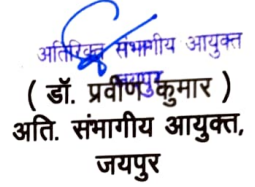 अतिरिक्त संभागीय आयुक्त
जयपुर
( डॉ. प्रवीण कुमार )
अति. संभागीय आयुक्त,
जयपुर